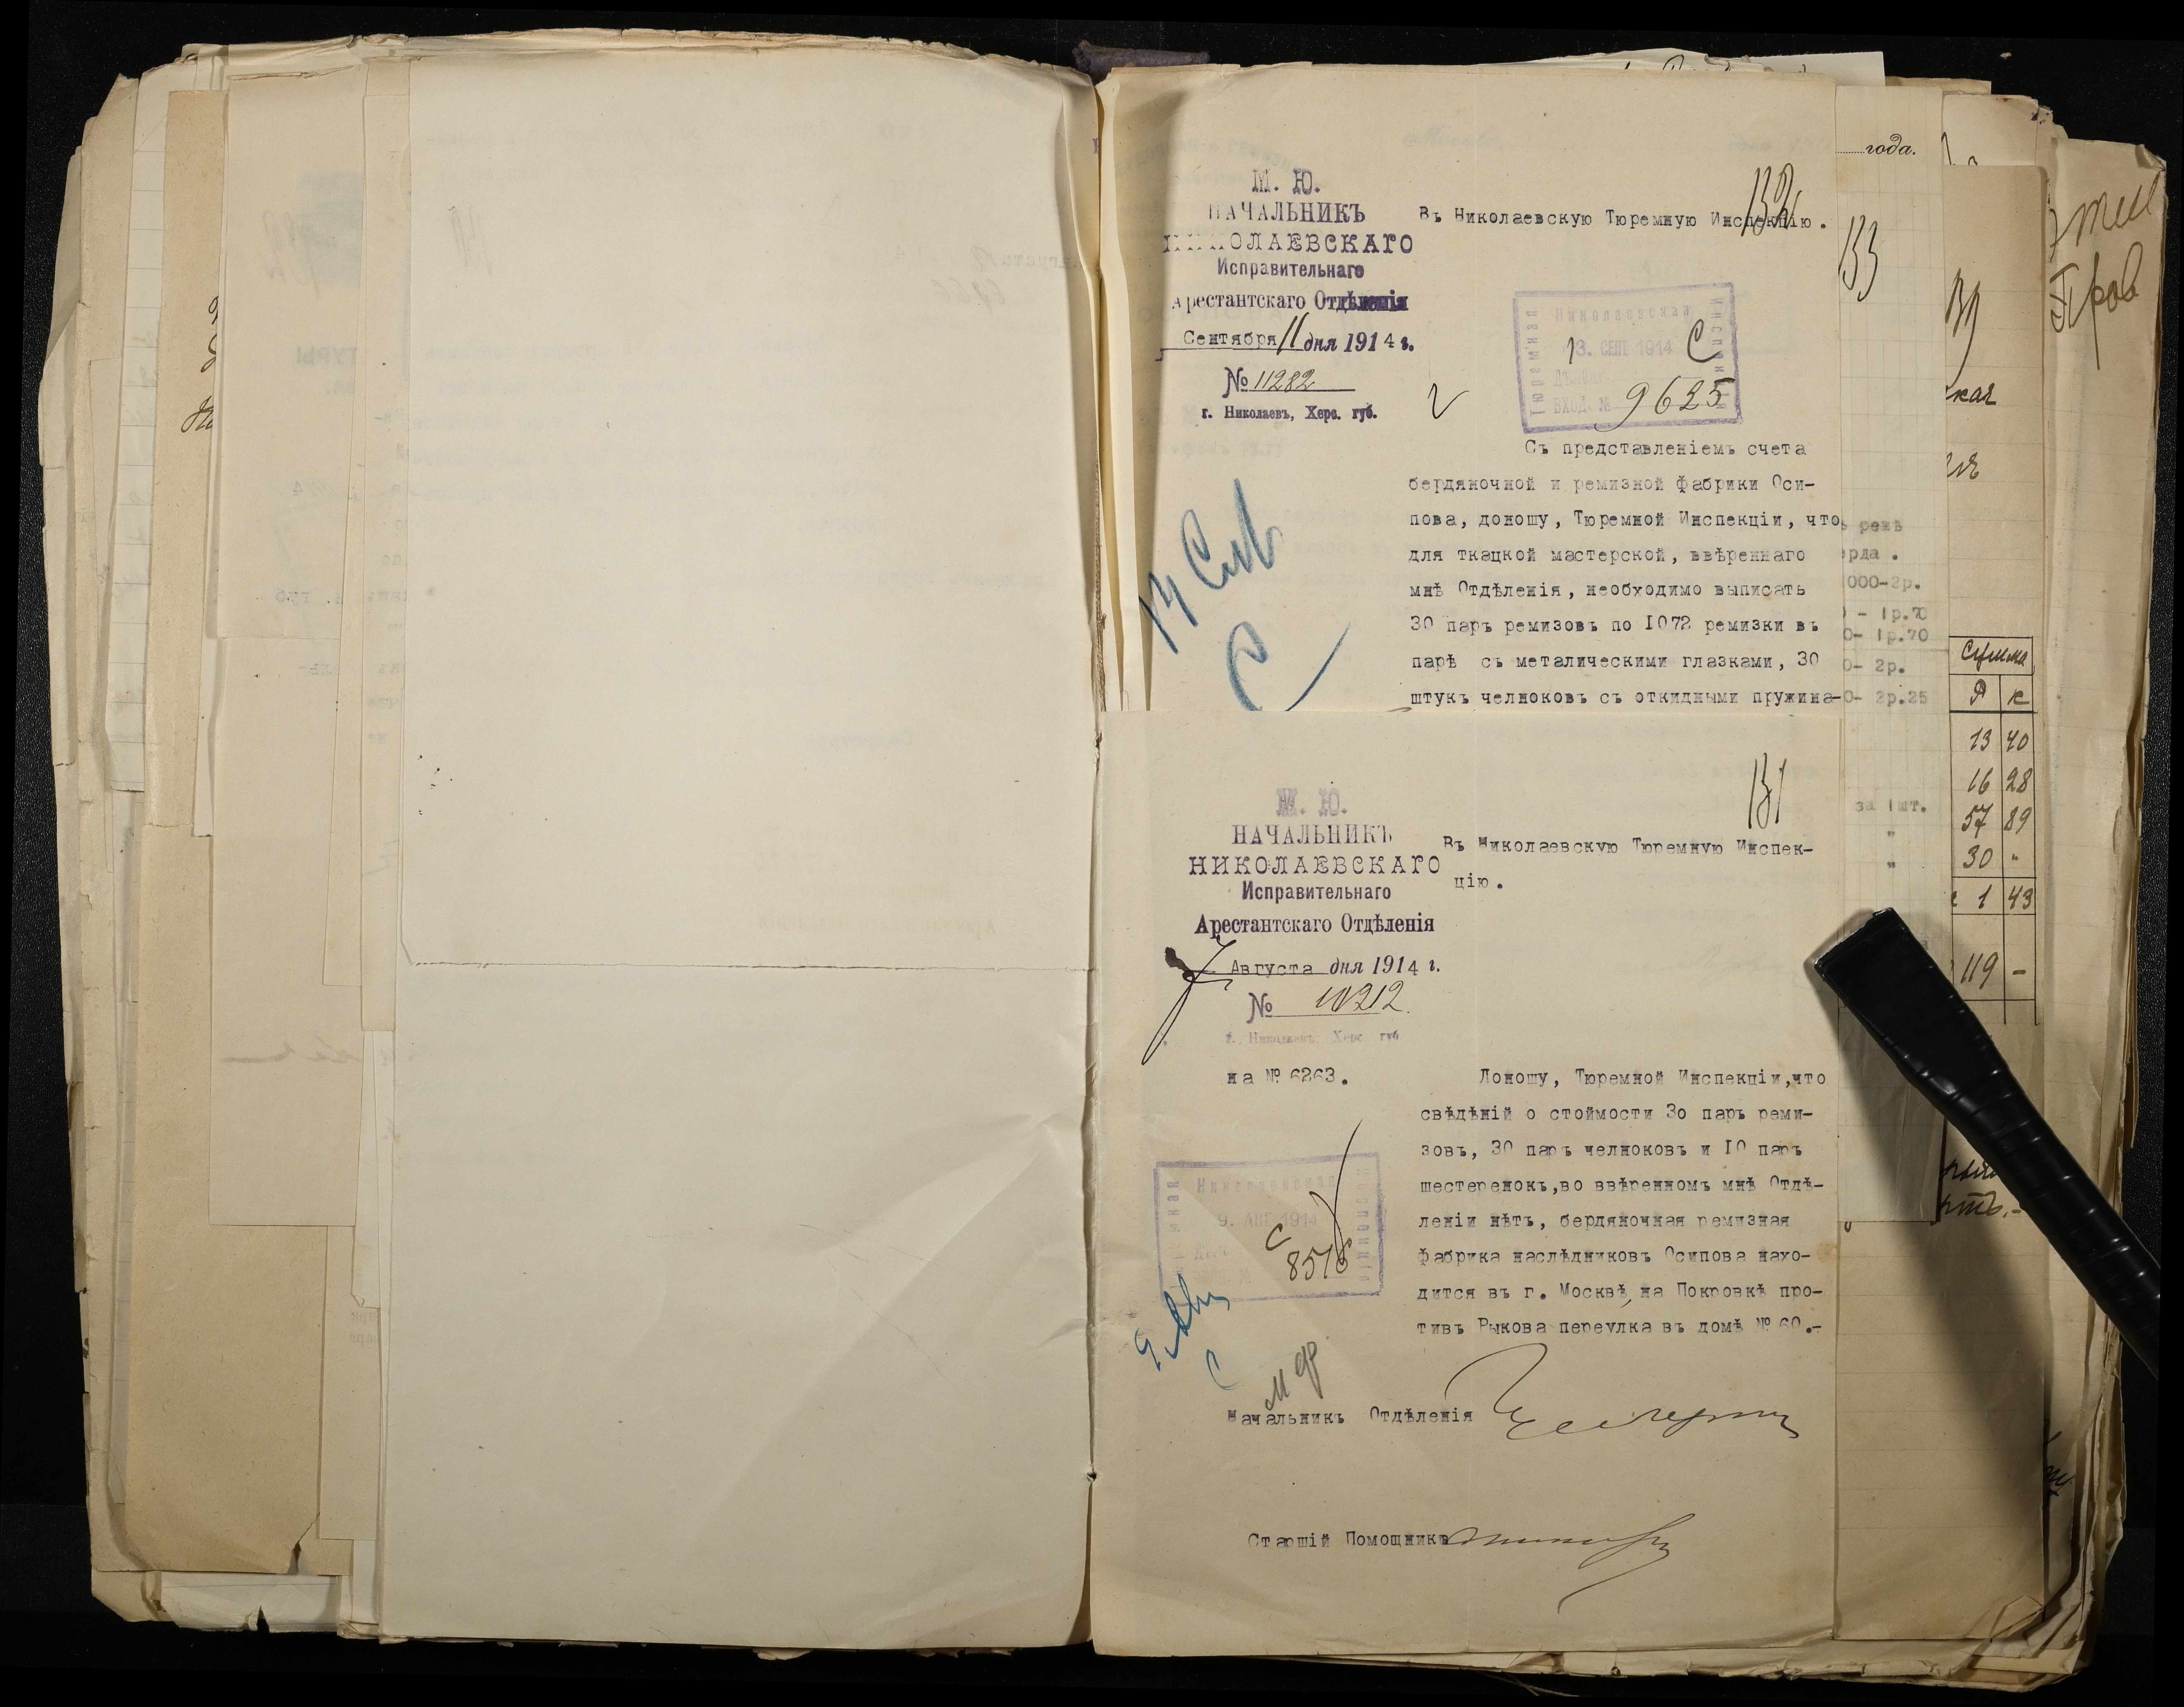 132
М. Ю.
НАЧАЛЬНИКЪ
НИКОЛАЕВСКАГО
Исправительнаго
Арестантскаго Отдѣленія
Сентября 11 дня 1914 г.
№ 11282
г. Николаевъ, Херс. губ.
Въ Николаевскую Тюремную Инспекцію.
Николаевская
Тюремная
Инспекція
13. СЕНТ 1914
С
ВХОД. № 9625
Съ представленіемъ счета
бердяночной и ремизной фабрики Оси-
пова, доношу, Тюремной Инспекціи, что
для ткацкой мастерской, ввѣреннаго
мнѣ Отдѣленія, необходимо выписать
30 паръ ремизовъ по 1072 ремизки въ
парѣ съ металическими глазками, 30
штукъ челноковъ съ откидными пружина-
131
М. Ю.
НАЧАЛЬНИКЪ
НИКОЛАЕВСКАГО
Исправительнаго
Арестантскаго Отдѣленія
7 Августа дня 1914 г.
№ 10212
г. Николаевъ, Херс. губ
на № 6263.
Въ Николаевскую Тюремную Инспек-
цію.
Николаевская
9. АВГ 1914
С
8516
Доношу, Тюремной Инспекціи,что
свѣдѣній о стоймости 3о паръ реми-
зовъ, 30 паръ челноковъ и 10 паръ
шестеренокъ,во ввѣренномъ мнѣ Отдѣ-
леніи нѣтъ, бердяночная ремизная
фабрика наслѣдниковъ Осипова нахо-
дится въ г. Москвѣ, на Покровкѣ про-
тивъ Рыкова переулка въ домѣ № 60.-
Начальникъ Отдѣленія
Старшій Помощникъ
года.
133
рда .
000-2р.
- 1р.70
0- 1р.70
0- 2р.
0- 2р.25
за 1 шт.
"
"
Сумма
Р к
13 40
16 28
57 89
30 "
1 43
119 -